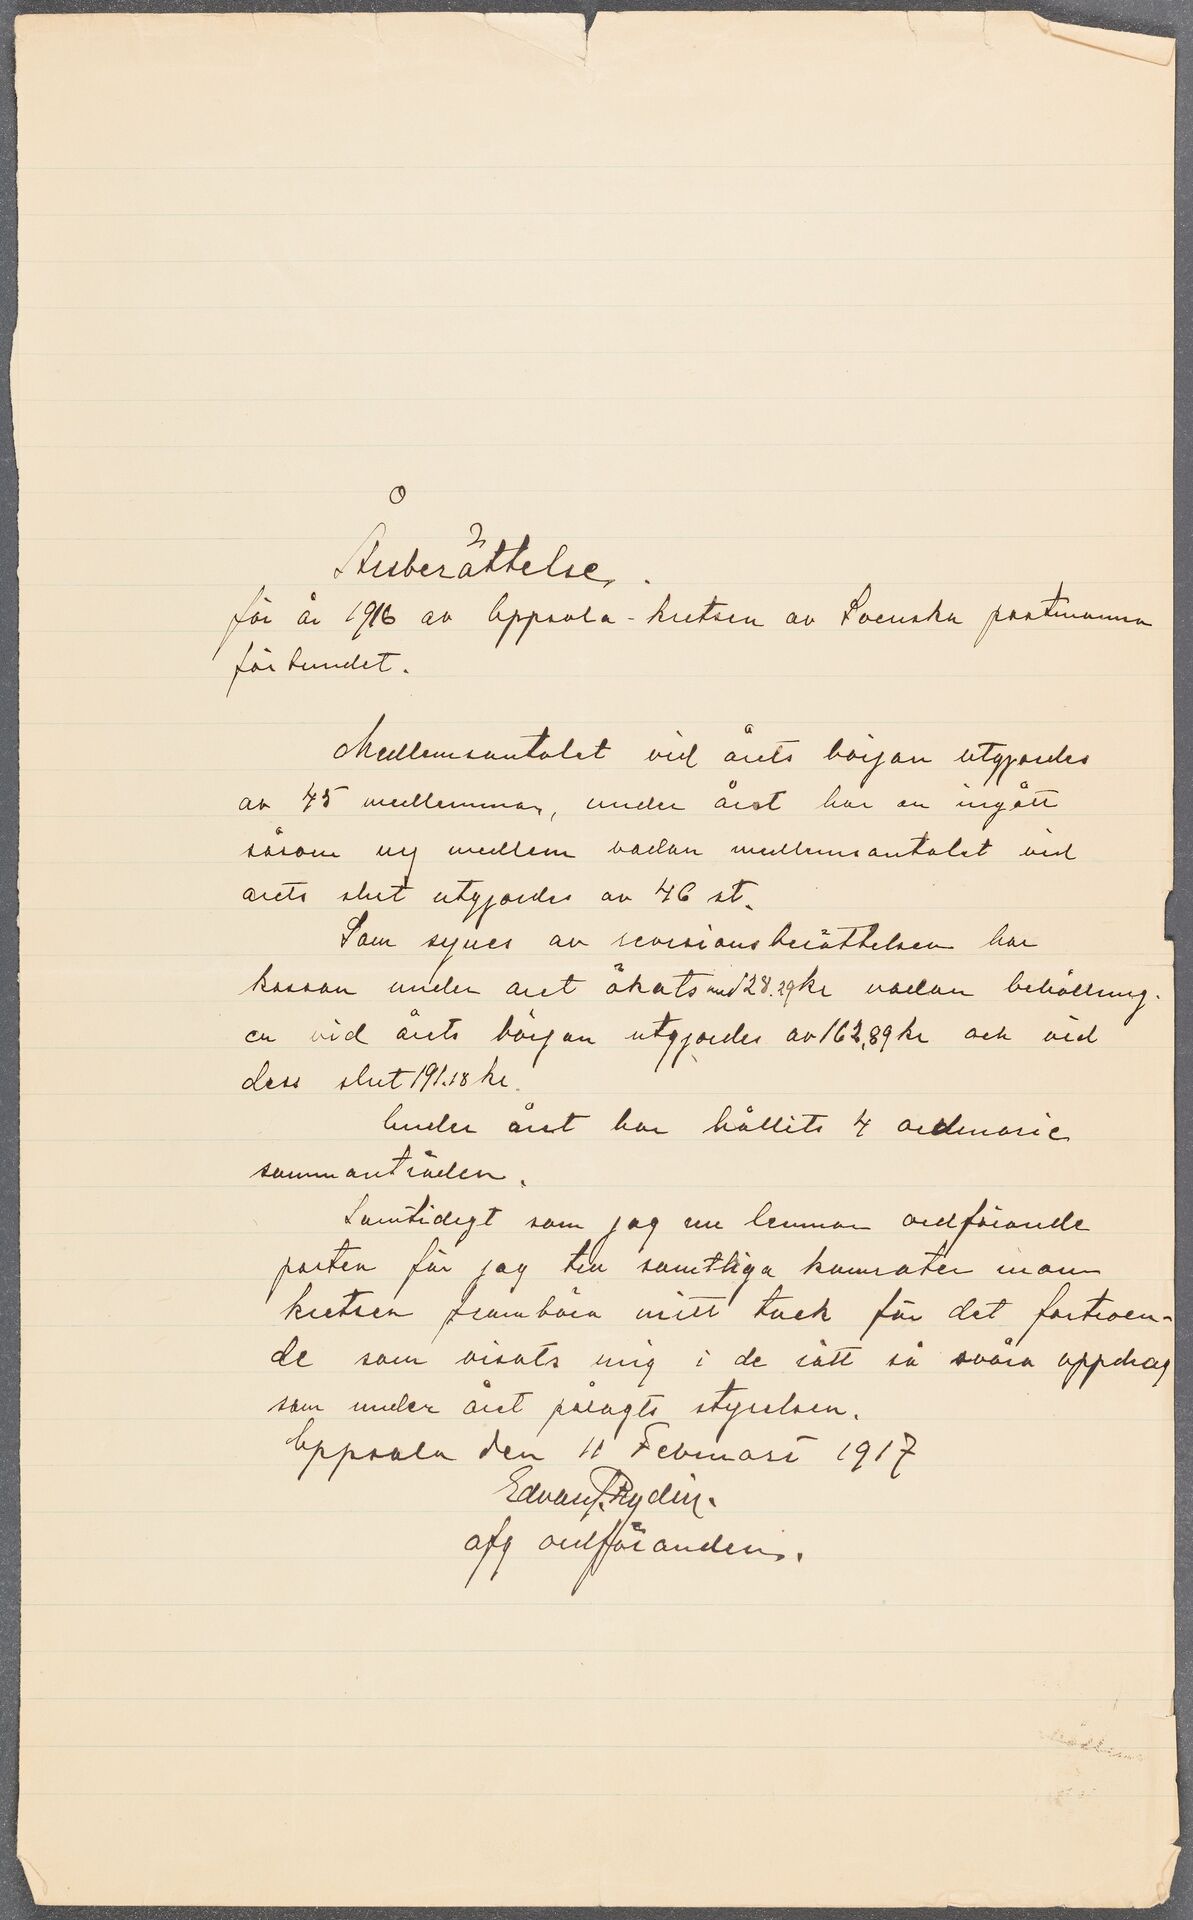 Årsberättelse.
för år 1916 av Uppsala-kretsen av Svenska postmanna
förbundet.
Medlemsantalet vid årets början utgjordes
av 45 medlemmar, under året har en ingått
såsom ny medlem vadan medlemsantalet vid
arets slut utgjordes av 46 st.
Som synes av revisionsberättelsen har
kassan under aret ökats med 28.29 kr vadan behållning-
en vid årets början utgjordes av 162,89 kr och vid
dess slut 191.18 kr.
Under året har hållits 4 ordinarie
sammanträden.
Samtidigt som jag nu lemnar ordförande
posten får jag till samtliga kamrater inom
kretsen frambära mitt tack för det fortroen-
de som visats mig i de rätt så svåra uppdrag
som under året pålagts styrelsen.
Uppsala den 11 Februari 1917
Edvard Rydin.
afg ordföranden.